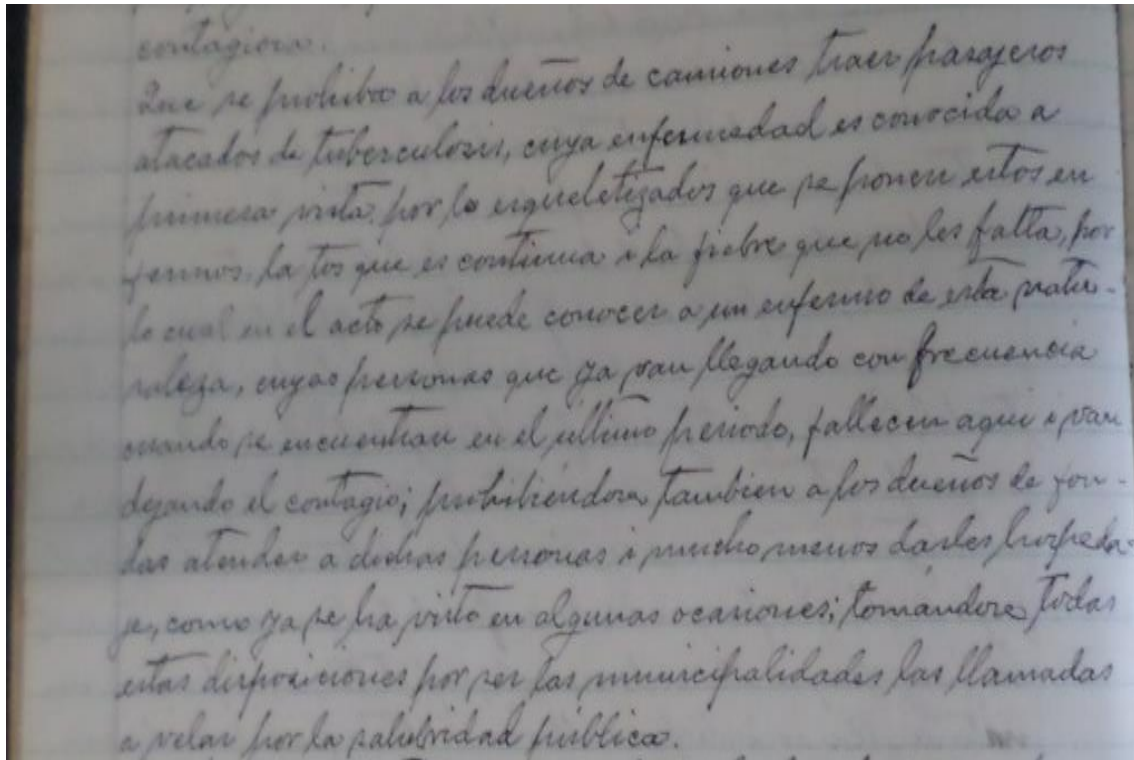 contagiosa.
Que se prohiba a los dueños de camiones traer pasajeros
atacados de tuberculosis, cuya enfermedad es conocida a
primera vista, por lo esqueletizados que se ponen estos en
fermos, la tos que es continua i la fiebre que no les falta, por
lo cual en el acto se puede conocer a un enfermo de esta natu-
raleza, cuyas personas que ya van llegando con frecuencia
cuando se encuentran en el ultimo periodo, fallecen aqui i van
dejando el contagio; prohibiendose tambien a los dueños de fon-
das atender a dichas personas i mucho menos darles hospeda-
je, como ya se ha visto en algunas ocasiones; tomandose todas
estas disposiciones por ser las municipalidades las llamadas
a velar por la salubridad pública.